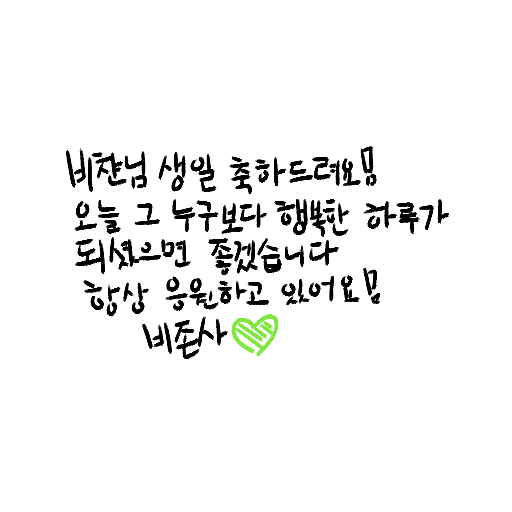 비챤님 생일 축하드려요!!
오늘 그 누구보다 행복한 하루가
되셨으면 좋겠습니다
항상 응원하고 있어요!!
비존사